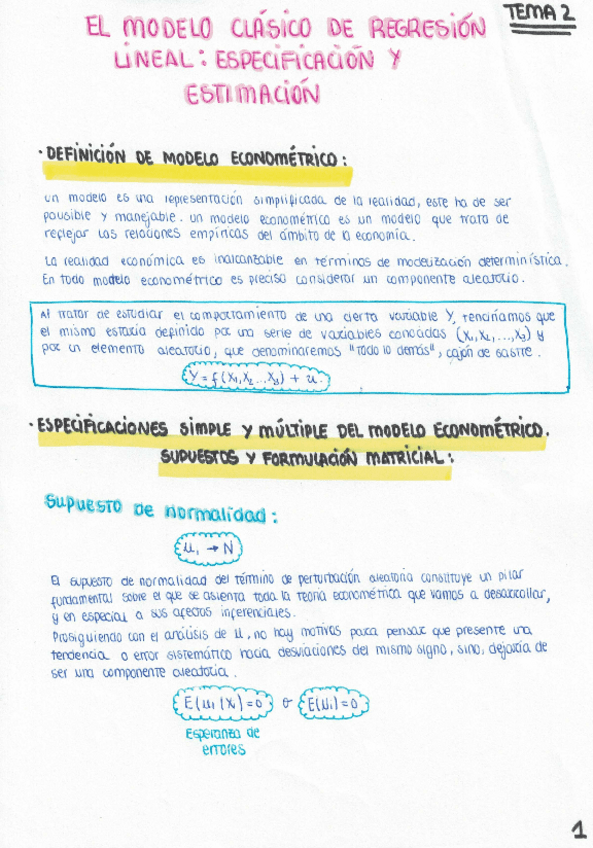 TEMA 2
EL MODELO CLÁSICO DE REGRESIÓN
LINEAL: ESPECIFICACIÓN Y
ESTIMACIÓN
· DEFINICIÓN DE MODELO ECONOMÉTRICO:
Un modelo es una representación simplificada de la realidad, este ha de ser
pausible y manejable. Un modelo econométrico es un modelo que trata de
reflejar las relaciones empíricas del ámbito de la economía.
La realidad económica es inalcanzable en términos de modelización determinística.
En todo modelo econométrico es preciso considerar un componente aleatorio.
Al tratar de estudiar el comportamiento de una cierta variable Y, tendríamos que
el mismo estaría definido por una serie de variables conocidas (X1, X2, ..., X3) y
por un elemento aleatorio, que denominaremos "todo lo demás", cajón de sastre.
Y = f(X1, X2 ... X3) + u.
· ESPECIFICACIONES SIMPLE Y MÚLTIPLE DEL MODELO ECONOMÉTRICO.
SUPUESTOS Y FORMULACIÓN MATRICIAL:
Supuesto de normalidad:
ui → N
El supuesto de normalidad del término de perturbación aleatoria constituye un pilar
fundamental sobre el que se asienta toda la teoría econométrica que vamos a desarrollar,
y en especial a sus afectos inferenciales.
Prosiguiendo con el análisis de u, no hay motivos para pensar que presente una
tendencia o error sistemático hacia desviaciones del mismo signo, sino, dejaría de
ser una componente aleatoria.
E(ui/Xi)=0 o E(ui)=0
Esperanza de
errores
1